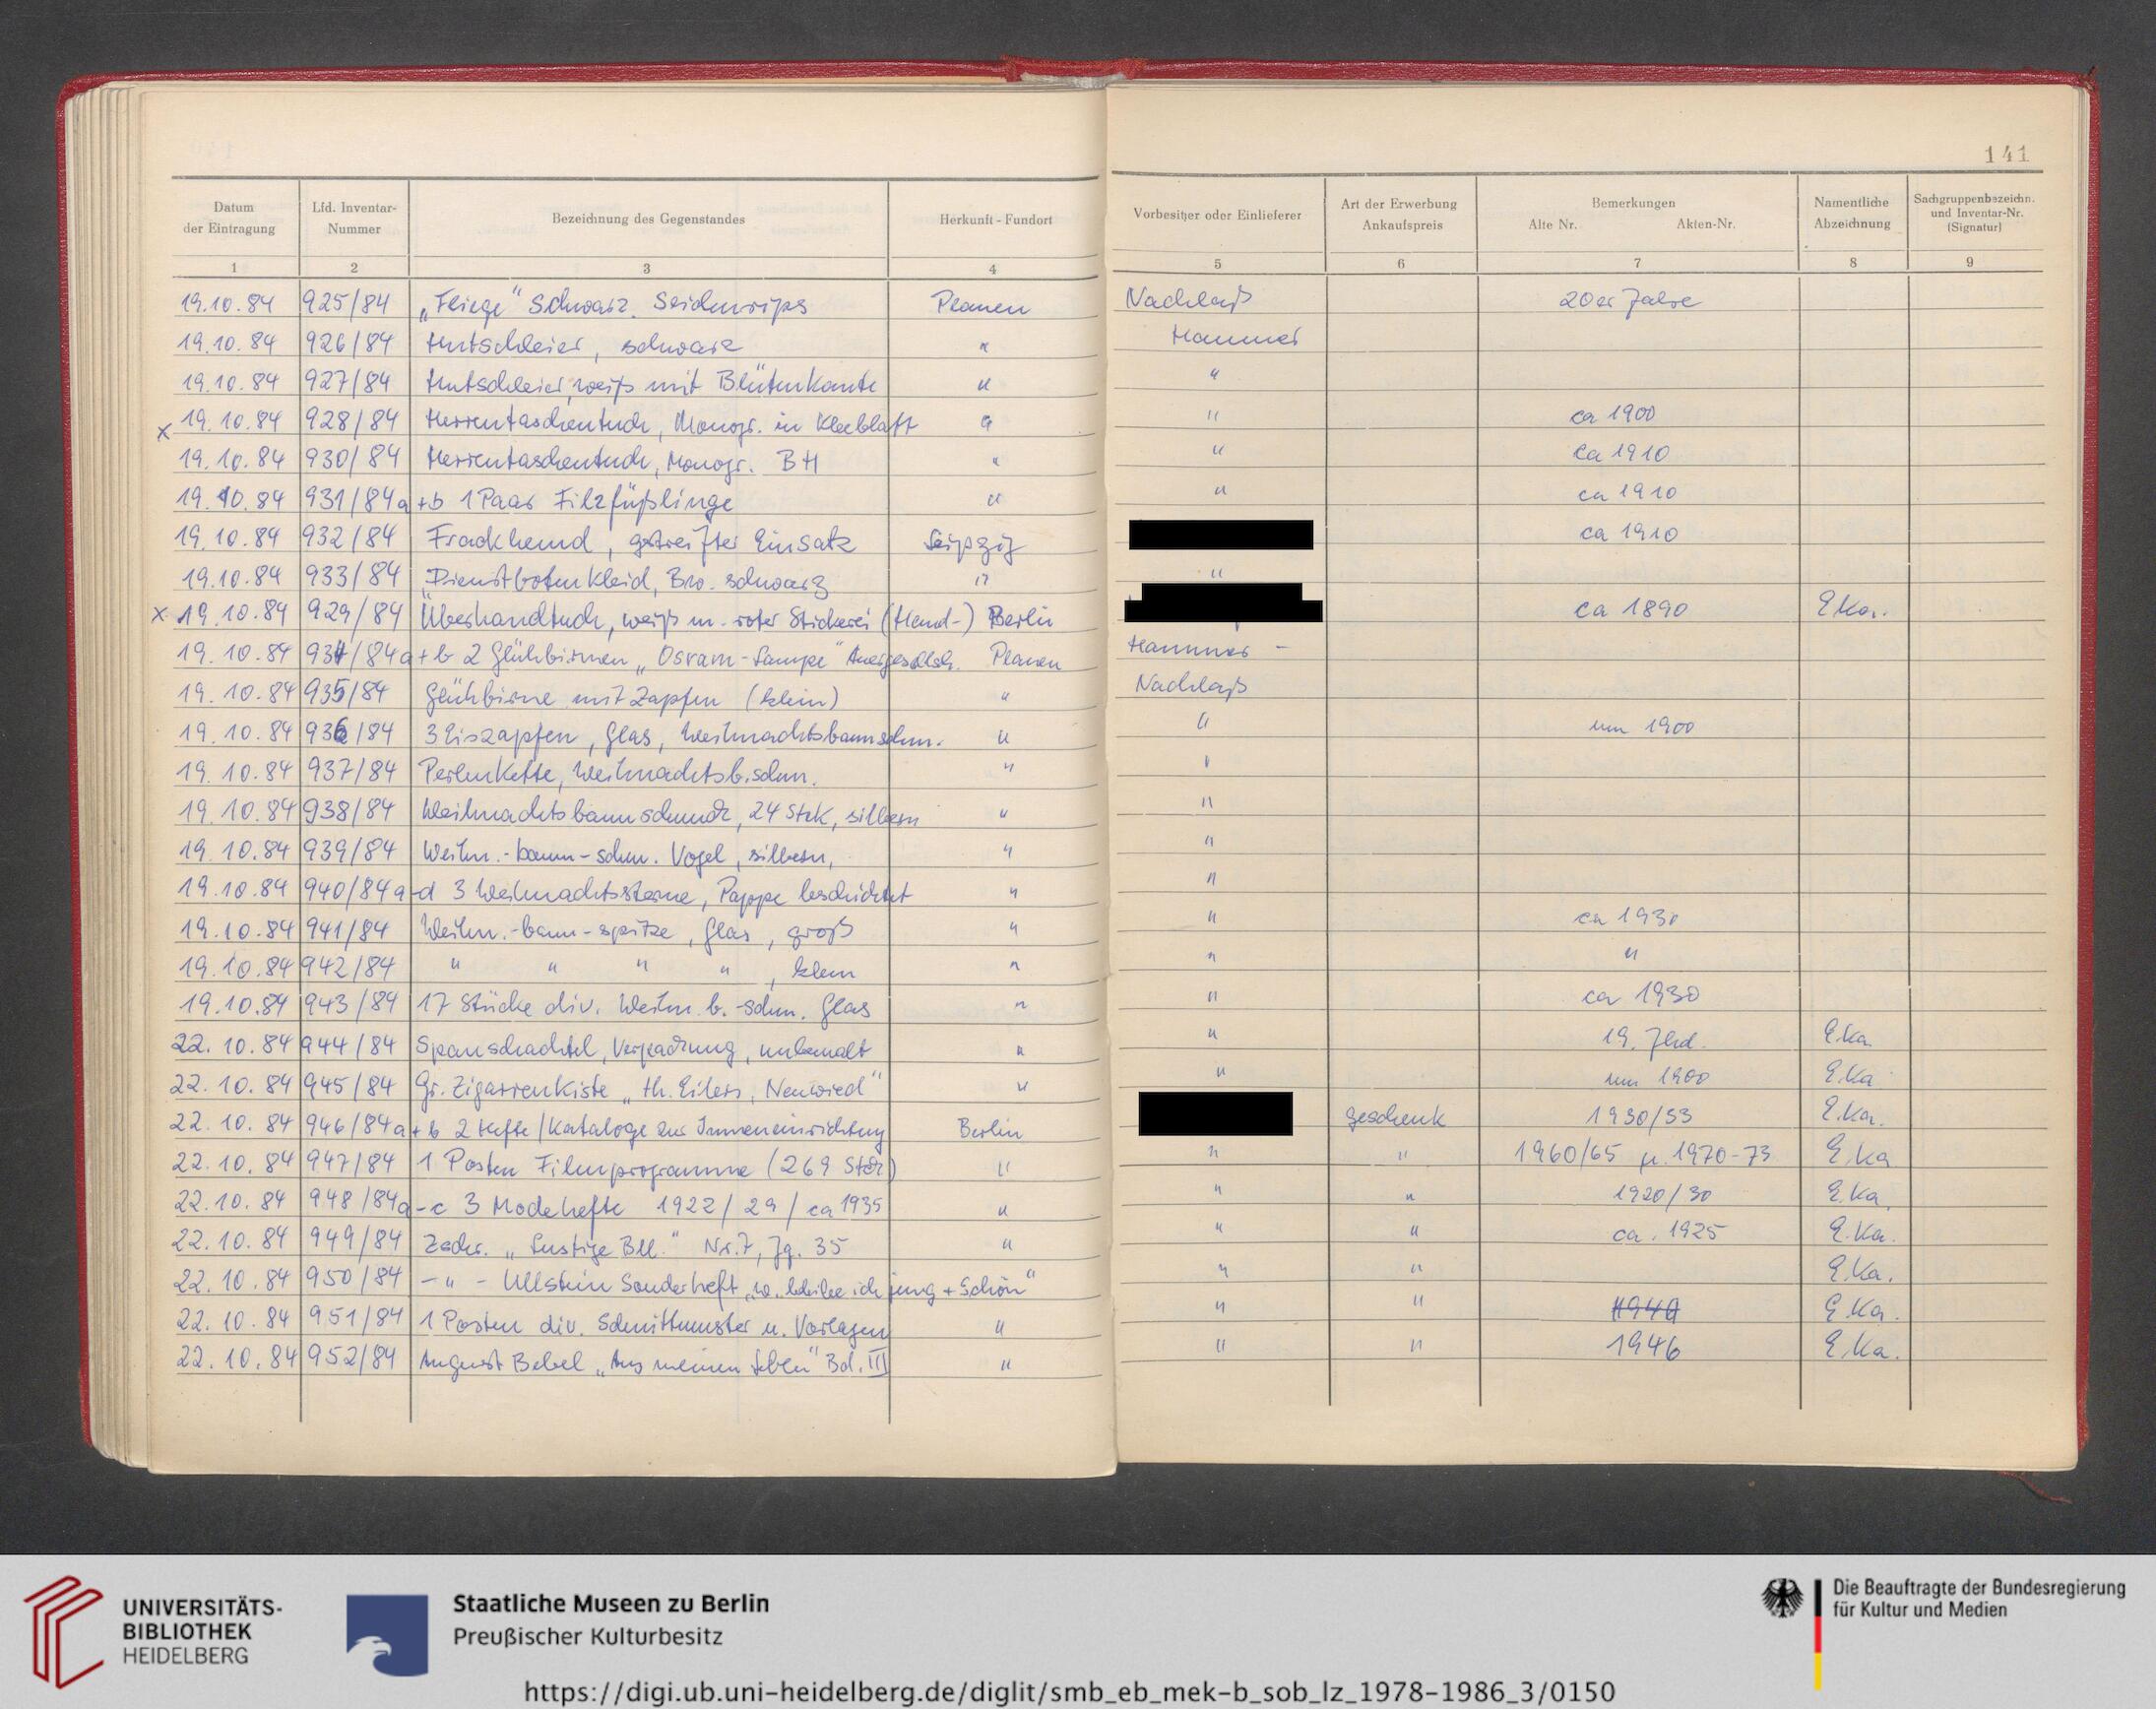 141
Datum der Eintragung | Lfd. Inventar-Nummer | Bezeichnung des Gegenstandes | Herkunft - Fundort | Vorbesitzer oder Einlieferer | Art der Erwerbung Ankaufspreis | Bemerkungen Alte Nr. Akten-Nr. | Namentliche Abzeichnung | Sachgruppenbezeichn. und Inventar-Nr. (Signatur)
1 | 2 | 3 | 4 | 5 | 6 | 7 | 8 | 9
19.10.84 | 925/84 | „Fliege" schwarz. Seidenrips | Plauen | Nachlaß | 20er Jahre
19.10.84 | 926/84 | Hutschleier, schwarz | " | Hammer
19.10.84 | 927/84 | Hutschleier, weiß mit Blütenkante | " | "
x 19.10.84 | 928/84 | Herrentaschentuch, Monogr. in Kleeblatt | " | " | ca 1900
19.10.84 | 930/84 | Herrentaschentuch, Monogr. BH | " | " | ca 1910
19.10.84 | 931/84 a+b | 1 Paar Filzfüßlinge | " | " | ca 1910
19.10.84 | 932/84 | Frackhemd, gestreifter Einsatz | Leipzig | ca 1910
19.10.84 | 933/84 | Dienstbotenkleid, Bw. schwarz | " | "
x 19.10.84 | 929/84 | Überhandtuch, weiß m. roter Stickerei (Hand-) | Berlin | ca 1890 | E.Ka.
19.10.84 | 934/84 a+b | 2 Glühbirnen „Osram-Lampe" Auergesellsch. | Plauen | Hammer -
19.10.84 | 935/84 | Glühbirne mit Zapfen (klein) | " | Nachlaß
19.10.84 | 936/84 | 3 Eiszapfen, Glas, Weihnachtsbaumschm. | " | " | um 1900
19.10.84 | 937/84 | Perlenkette, Weihnachtsb.schm. | " | "
19.10.84 | 938/84 | Weihnachtsbaumschmuck, 24 Stck, silbern | " | "
19.10.84 | 939/84 | Weihn.-baum-schm. Vogel, silbern, | " | "
19.10.84 | 940/84 a-d | 3 Weihnachtssterne, Pappe beschichtet | " | "
19.10.84 | 941/84 | Weihn.-baum-spitze, Glas, groß | " | " | ca 1930
19.10.84 | 942/84 | " " " ", klein | " | " | "
19.10.84 | 943/84 | 17 Stücke div. Weihn.b.-schm. Glas | " | " | ca 1930
22.10.84 | 944/84 | Spanschachtel, Verpackung, unbemalt | " | " | 19. Jhd. | E.Ka.
22.10.84 | 945/84 | Gr. Zigarrenkiste „Th. Eilers, Neuwied" | " | " | um 1900 | E.Ka
22.10.84 | 946/84 a+b | 2 Hefte/Kataloge zur Inneneinrichtung | Berlin | Geschenk | 1930/53 | E.Ka.
22.10.84 | 947/84 | 1 Posten Filmprogramme (269 Stck) | " | " | " | 1960/65 u. 1970-73 | E.Ka
22.10.84 | 948/84 a-c | 3 Modehefte 1922/29/ca 1935 | " | " | " | 1920/30 | E.Ka.
22.10.84 | 949/84 | Zschr. „Lustige Bll." Nr.7, Jg. 35 | " | " | " | ca. 1925 | E.Ka.
22.10.84 | 950/84 | -"- Ullstein Sonderheft „W. bleibe ich jung + schön" | " | " | E.Ka.
22.10.84 | 951/84 | 1 Posten div. Schnittmuster u. Vorlagen | " | " | " | E.Ka.
22.10.84 | 952/84 | August Bebel „Aus meinem Leben" Bd. III | " | " | " | 1946 | E.Ka.
UNIVERSITÄTS-
BIBLIOTHEK
HEIDELBERG
Staatliche Museen zu Berlin
Preußischer Kulturbesitz
Die Beauftragte der Bundesregierung
für Kultur und Medien
https://digi.ub.uni-heidelberg.de/diglit/smb_eb_mek-b_sob_lz_1978-1986_3/0150